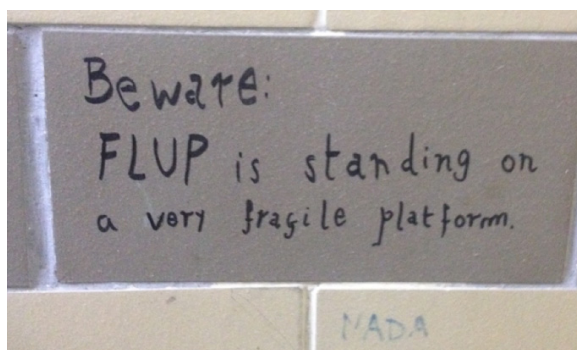 Beware:
FLUP is standing on
a very fragile platform.
NADA